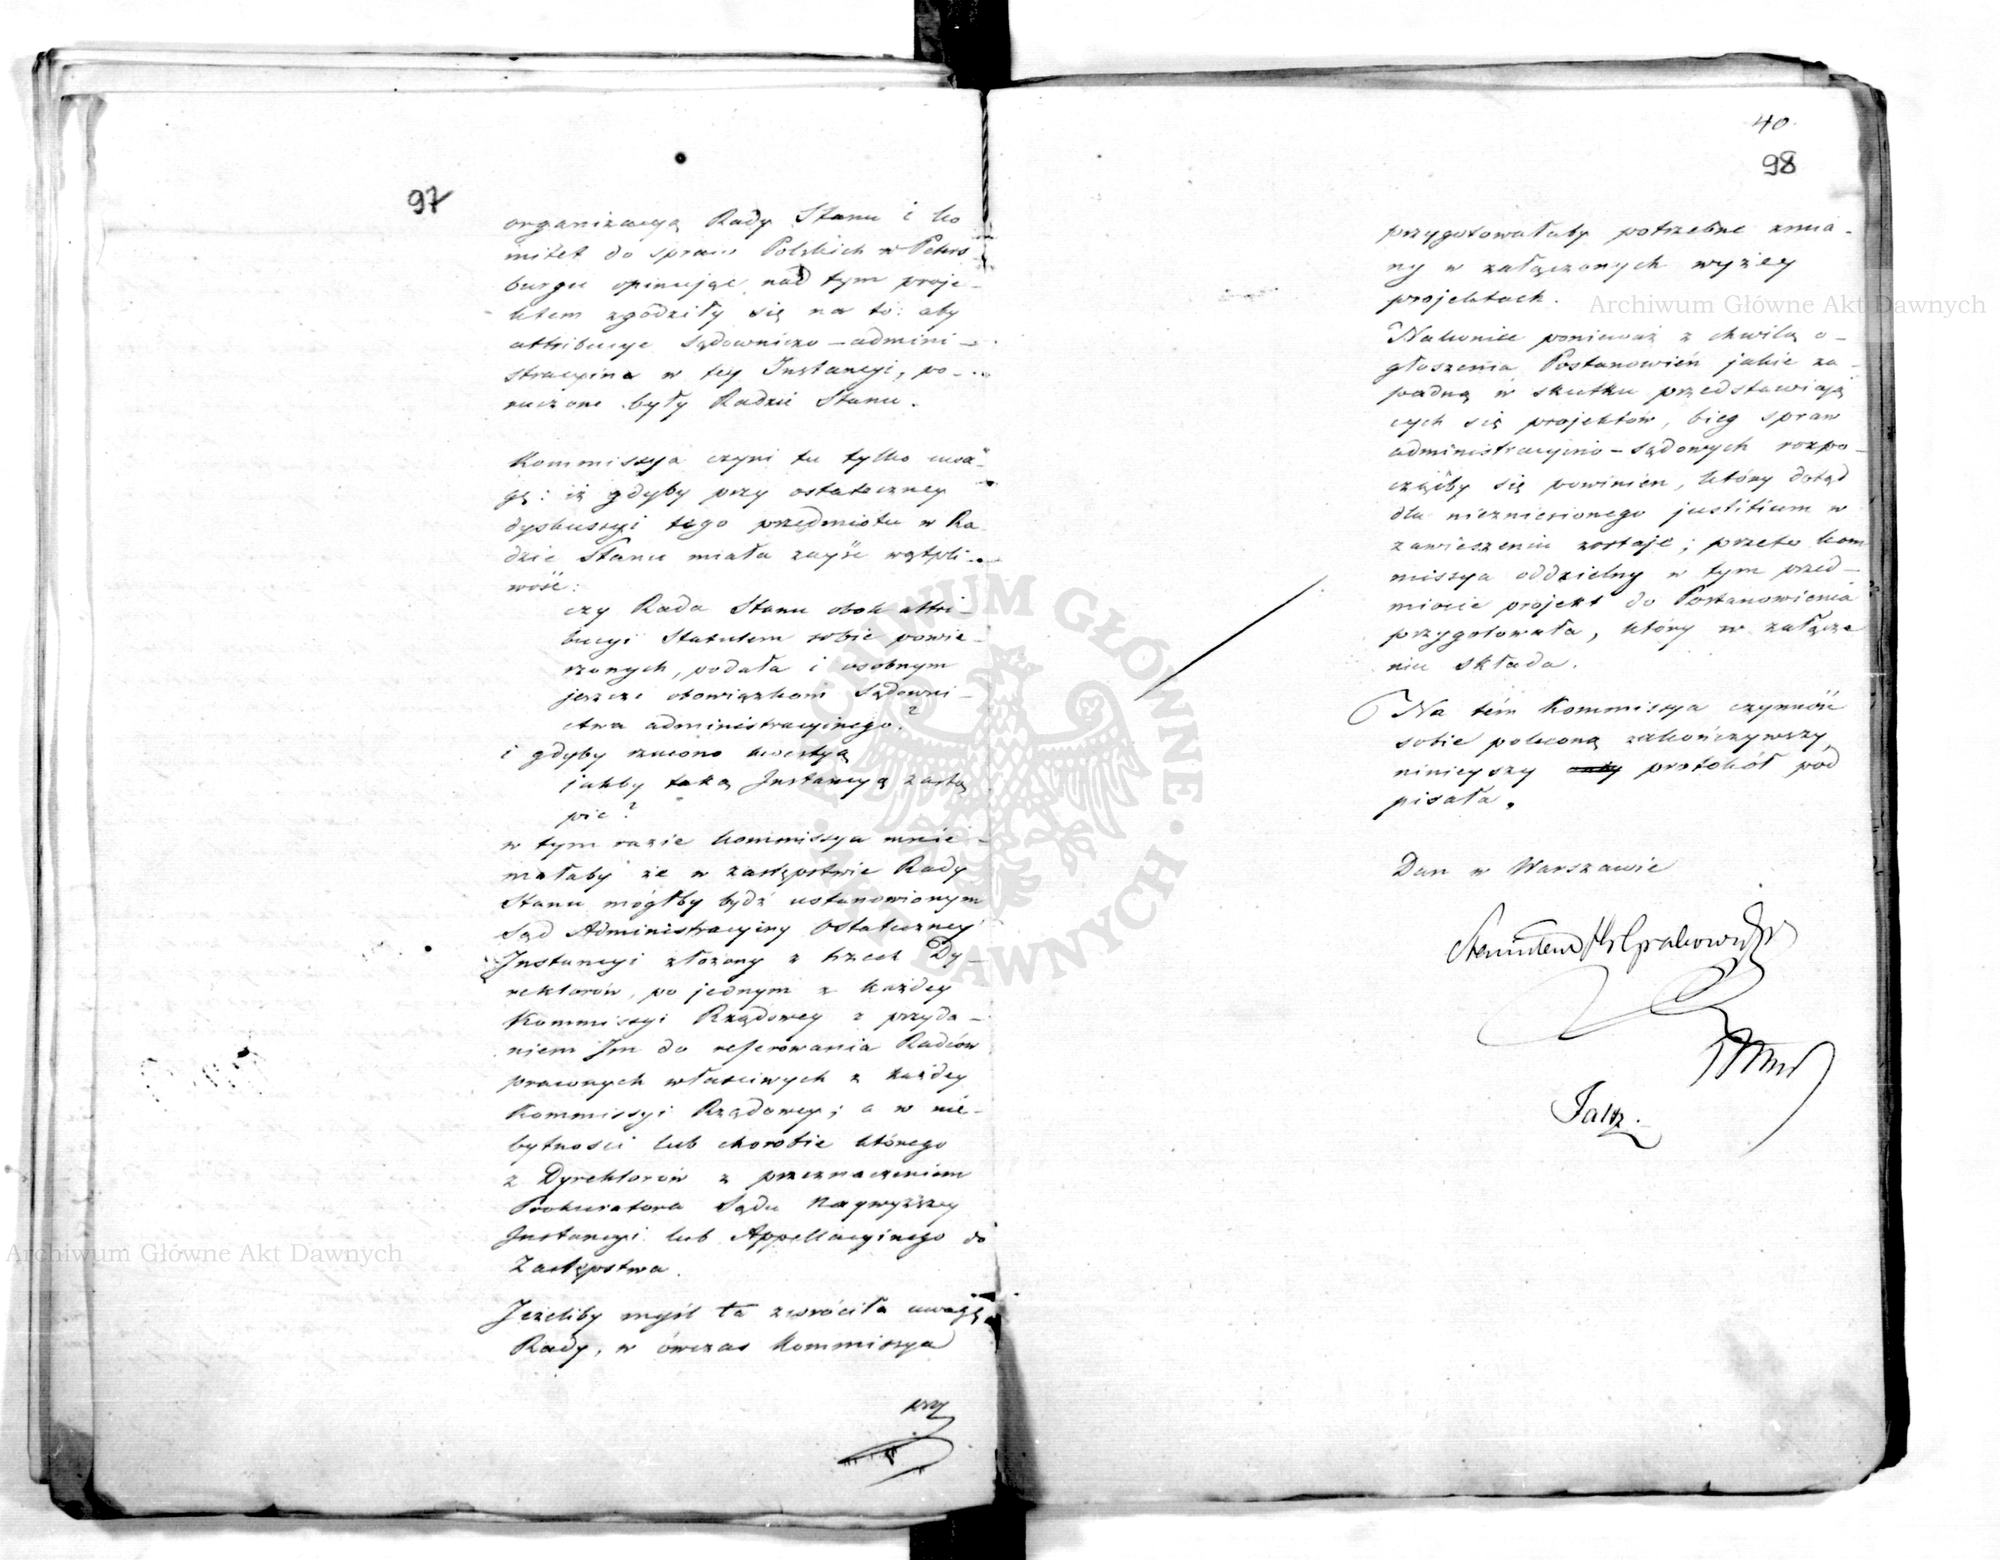 97
organizacyą Rady Stanu i Ko
mitet do spraw Polskich w Peters
burgu opiniując nad tym proje-
ktem zgodziły się na to: aby
attribucye Sądowniczo-admini-
stracyine w tey Instancyi, po-
ruczone były Radzie Stanu.
Kommissya czyni tu tylko uwa-
gę: iż gdyby przy ostateczney
dyskussyi tego przedmiotu w Ra-
dzie Stanu miała zayść wątpli-
wość:
czy Rada Stanu obok attri-
bucyi Statutem sobie powie-
rzonych, podoła i osobnym
jeszcze obowiązkom Sądowni-
ctwa administracyinego?
i gdyby rzucono kwestyą
jakby taką Instancyą zastą
pić?
w tym razie kommissya mnie-
małaby że w zastępstwie Rady
Stanu mógłby bydź ustanowionym
Sąd Administracyiny Ostateczney
Instancyi złożony z trzech Dy-
rektorów, po jednym z każdey
Kommissyi Rządowey z przyda-
niem Im do referowania Radców
prawnych właściwych z każdey
Kommissyi Rządowey; a w nie-
bytności lub chorobie którego
z Dyrektorów z przeznaczeniem
Prokuratora Sądu Naywyższey
Instancyi lub Appellacyinego do
Zastępstwa.
Jeżeliby myśl ta zwróciła uwagę
Rady, w ówczas Kommissya
przy
40.
98
przygotowałaby potrzebne zmia-
ny w załączonych wyżey
projektach.
Nakoniec ponieważ z chwilą o-
głoszenia Postanowień jakie za-
padną w skutku przedstawiają
cych się projektów, bieg spraw
administracyino-sądowych rozpo-
cząćby się powinien, który dotąd
dla niezniesionego justitium w
zawieszeniu zostaje; przeto kom
missya oddzielny w tym przed-
miocie projekt do Postanowienia
przygotowała, który w załącze
niu składa.
Na tém Kommissya czynność
sobie poleconą zakończywszy,
ninieyszy protokół pod
pisała.
Dan w Warszawie
Stanisław Hr Grabowski
Archiwum Główne Akt Dawnych
Archiwum Główne Akt Dawnych
ARCHIWUM GŁÓWNE AKT DAWNYCH